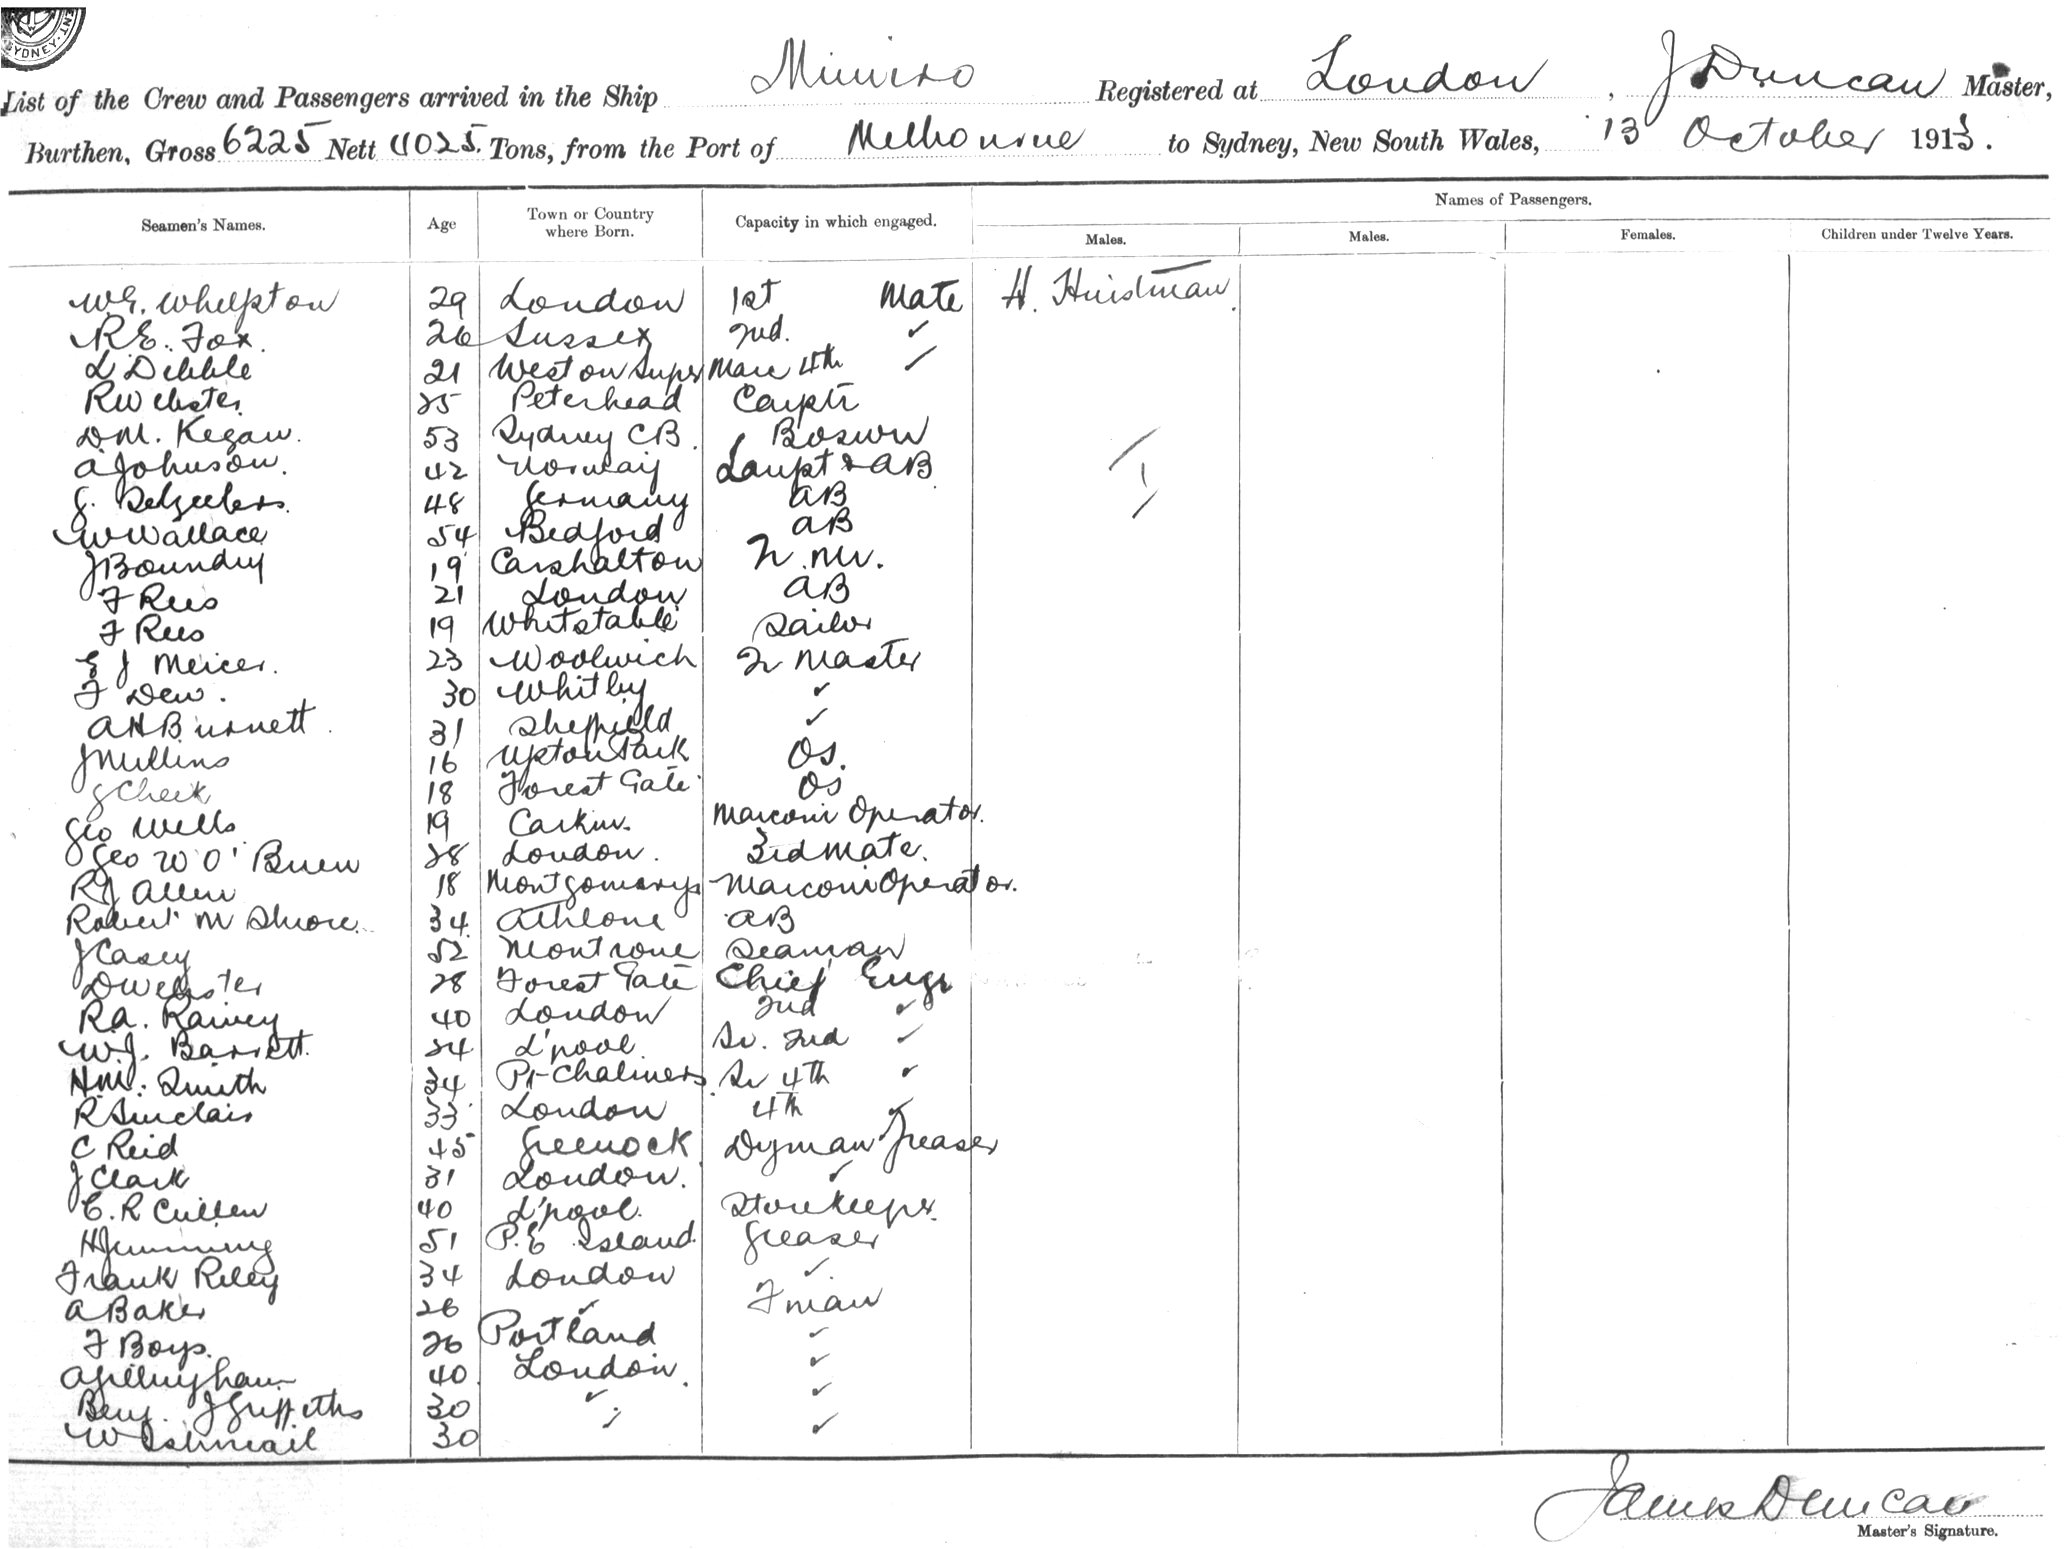 SYDNEY
List of the Crew and Passengers arrived in the Ship Mimiro Registered at London, J Duncan Master,
Burthen, Gross 6225 Nett 4025. Tons, from the Port of Melbourne to Sydney, New South Wales, 13 October 1913.
Names of Passengers.
Seamen's Names. Age Town or Country where Born. Capacity in which engaged. Males. Males. Females. Children under Twelve Years.
W.G. Whelpton 29 London 1st Mate H. Huistman
R.E. Fox. 26 Sussex 2nd. ✓
L Dibble 21 Weston Super Mare 4th ✓
R Webster 25 Peterhead Carptr
D.M. Kegan. 53 Sydney CB. Boswn
A Johnson. 42 Norway Lampt & AB
G. 48 Germany AB
W Wallace 54 Bedford AB
J Boundry 19 Carshalton
F Rees 21 London AB
F Rees 19 Whitstable Sailor
E J Mercer. 23 Woolwich Qr Master
F Dew. 30 Whitby ✓
A H Burnett. 31 Sheffield ✓
J Mullins 16 Upton Park OS.
G Cheek 18 Forest Gate OS
Geo Wells 19 Marconi Operator.
Geo W O'Brien 28 London. 3rd Mate.
R J Allen 18 Montgomerys Marconi Operator.
Robert M Shore. 34 Athlone AB
J Casey 52 Montrose Seaman
D Webster 28 Forest Gate Chief Engr
R.A. Rainey 40 London 2nd ✓
W.J. Barrett. 24 L'pool. Sr. 2nd ✓
H.M. Smith 34 Pt Chalmers Sr 4th ✓
R Sinclair 33 London 4th ✓
C Reid 45 Greenock Dyman Greaser
J Clark 31 London. ✓
E. R Cullen 40 L'pool. Storekeeper.
H Jemming 51 P.E Island. Greaser
Frank Riley 34 London ✓
A Baker 26 ✓ Fman
F Boys. 26 Portland ✓
A Gillingham 40. London. ✓
Benj. J Griffiths 30 ✓ ✓
W Ishmail 30 ✓ ✓
James Duncan
Master's Signature.